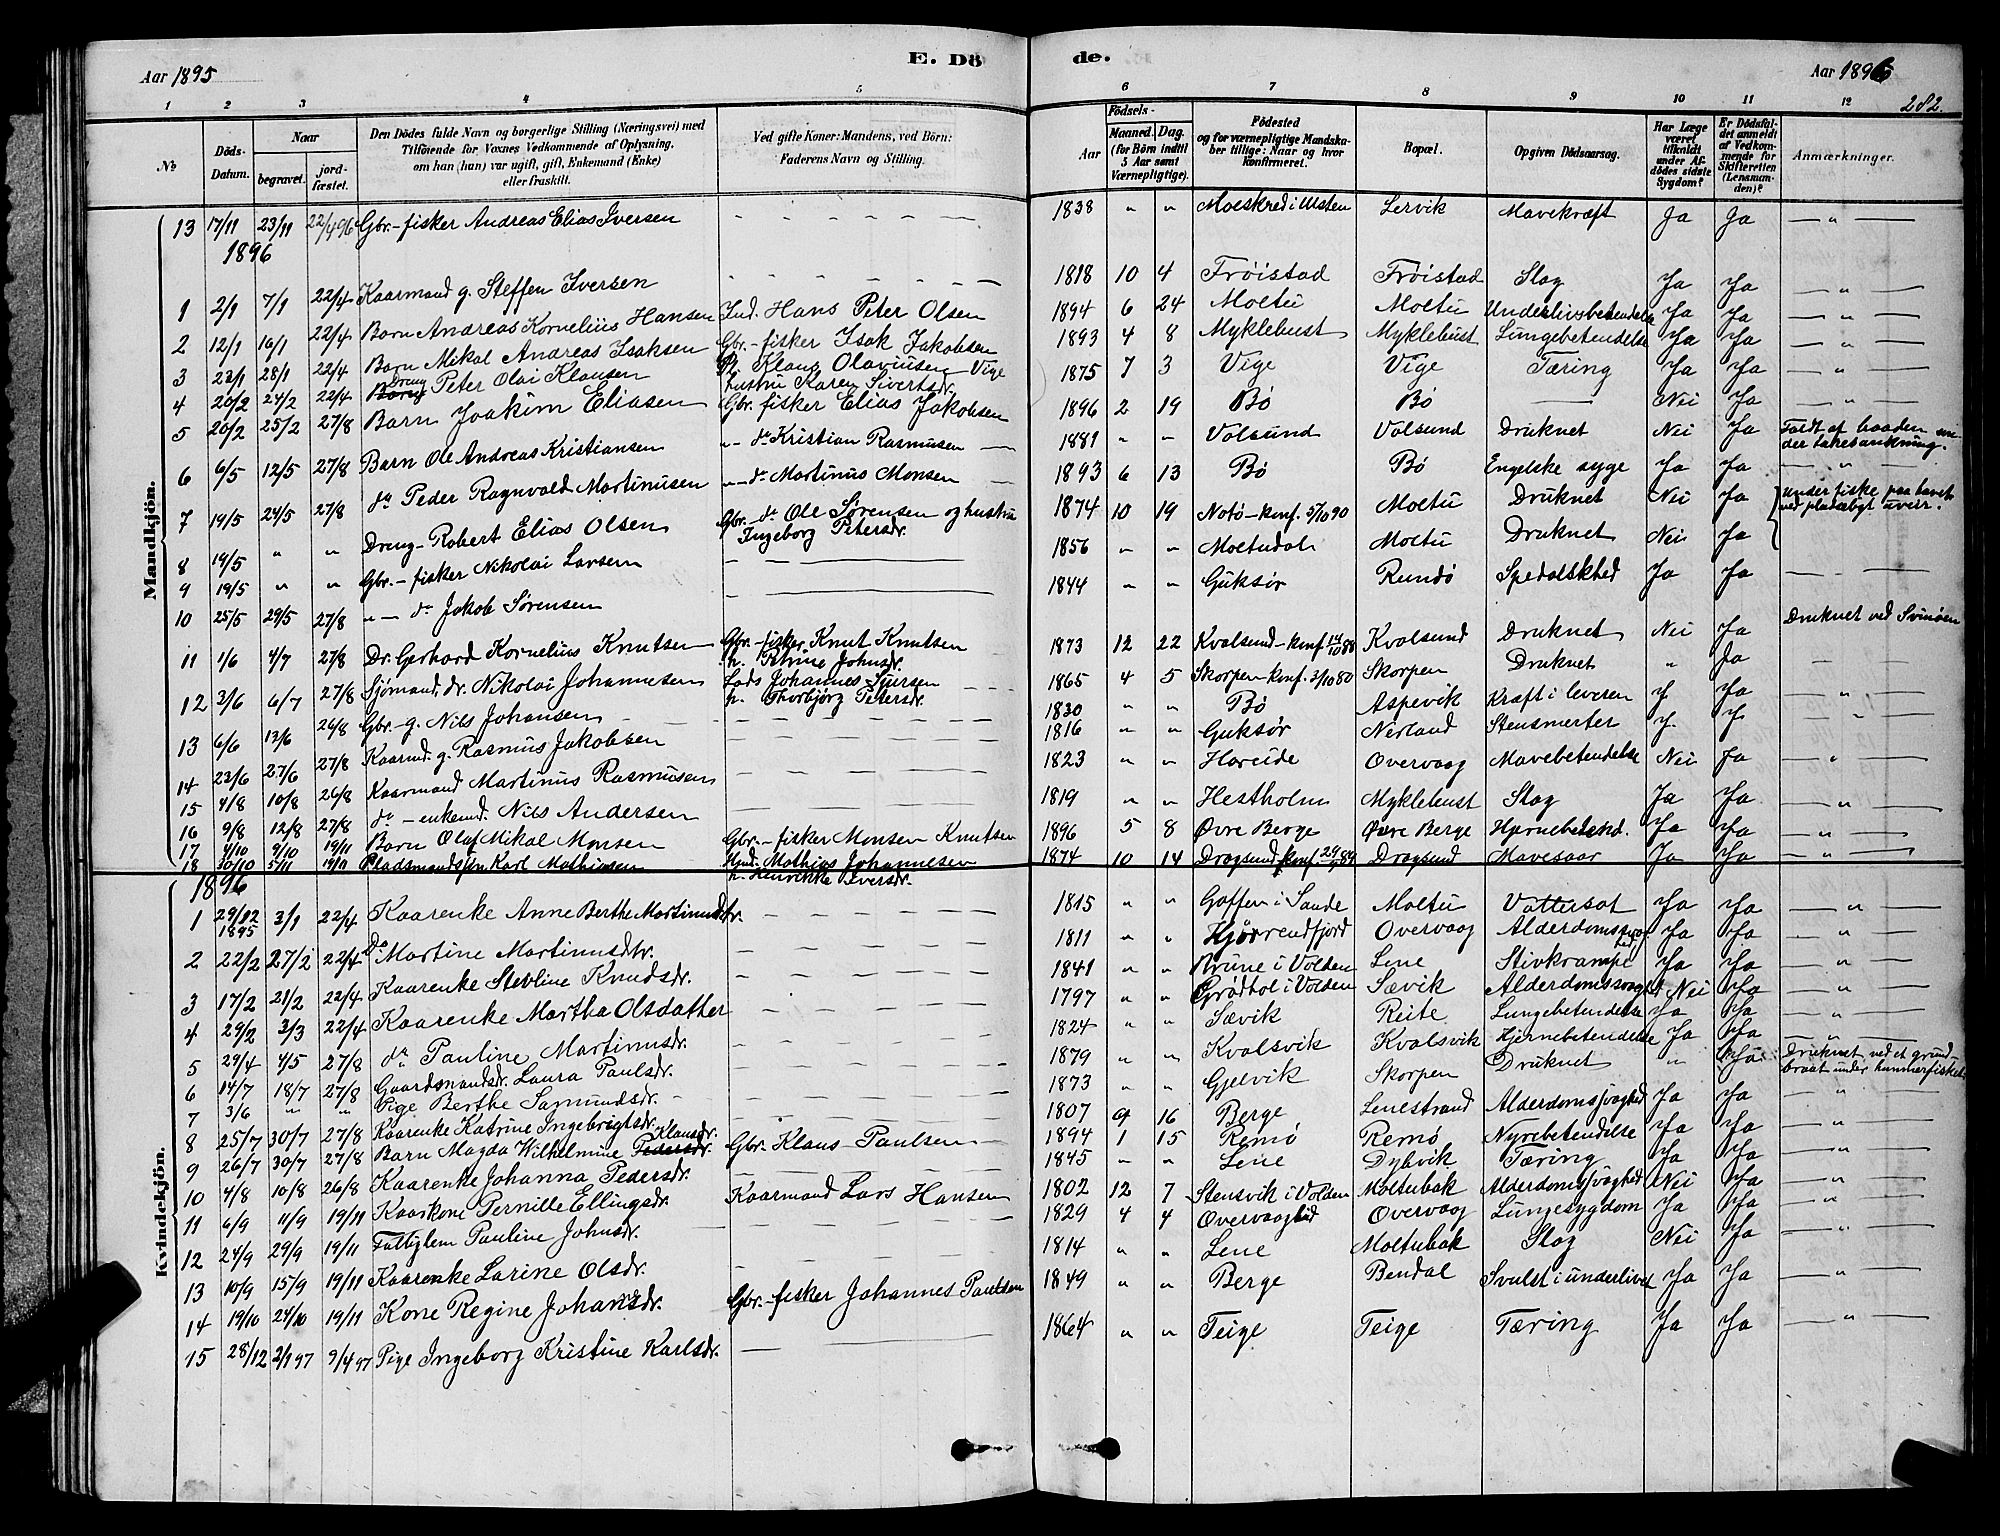 Aar 1895
E. Dö
de.
Aar 1896
282.
1 2 3 4 5
6 7 8 9 10 11 12
No
Döds-Datum.
Naar
begravet.
jord-fæstet.
Den Dödes fulde Navn og borgerlige Stilling (Næringsvei) med
Tilföiende for Voxnes Vedkommende af Oplysning,
om han (hun) var ugift, gift, Enkemand (Enke)
eller fraskilt.
Ved gifte Koner: Mandens, ved Börn:
Faderens Navn og Stilling.
Födsels-
Aar
Maaned. Dag.
(for Börn indtil
5 Aar samt
Værnepligtige).
Födested
og for værnepligtige Mandska-
ber tillige: Naar og hvor
Konfirmeret.
Bopæl.
Opgiven Dödsaarsag.
Har Læge
været
tilkaldt
under Af-
dödes sidste
Sygdom?
Er Dödsfal-
det anmeldt
af Vedkom-
mende for
Skifteretten
(Lensman-
den)?
Anmærkninger.
Mandkjön.
13 17/11 23/11 22/4 96 Gbr.-fisker Andreas Elias Iversen 1838 " " Moeskred i Ulsten Lervik Mavekræft Ja Ja "
1896
1 2/1 7/1 22/4 Kaarmand g. Steffen Iversen 1818 10 4 Frøistad Frøistad Slag Ja Ja "
2 12/1 16/1 22/4 Barn Andreas Kornelius Hansen Ind. Hans Peter Olsen 1894 6 24 Moltu Moltu Underlivsbetendelse Ja Ja "
3 23/1 28/1 22/4 Barn Mikal Andreas Isaksen Gbr.-fisker Isak Jakobsen 1893 4 8 Myklebust Myklebust Lungebetendelse Ja Ja "
4 20/2 24/2 22/4 Dreng Peter Olai Klausen Klaus Olaviusen Vige hustru Karen Sivertsdr. 1875 7 3 Vige Vige Tæring Ja Ja "
5 20/2 25/2 27/8 Barn Joakim Eliasen Gbr. fisker Elias Jakobsen 1896 2 19 Bø Bø — Nei Ja "
6 6/5 12/5 27/8 Barn Ole Andreas Kristiansen "- do Kristian Rasmusen 1881 " " Volsund Volsund Druknet Nei Ja Faldt af baaden un-
der takesankning.
7 19/5 24/5 27/8 do Peder Ragnvald Martinusen "- do Martinus Monsen 1893 6 13 Bø Bø Engelske syge Ja Ja "
8 19/5 " " Dreng Robert Elias Olsen Gbr.- do Ole Sørensen og hustru Ingeborg Petersdr. 1874 10 19 Notø-konf. 5/10 90 Moltu Druknet Nei Ja under fiske paa havet
ved pludseligt uveir.
9 19/5 " " Gbr.-fisker Nikolai Larsen 1856 " " Moltudal Moltu Druknet Nei Ja
10 25/5 29/5 27/8 "- do Jakob Sørensen 1844 " " Guksør Rundø Spedalskhed Ja Ja
11 1/6 4/7 27/8 Dr. Gerhard Kornelius Knutsen Gbr.-fisker Knut Knutsen h. Petrine Johnsdr. 1873 12 22 Kvalsund-konf. 14/10 88 Kvalsund Druknet Nei Ja Druknet ved Svinøen
12 3/6 6/7 27/8 Sjømand, dr. Nikolai Johannesen Lods Johannes Sjursen h. Thorbjørg Petersdr. 1865 4 5 Skorpen-konf. 3/10 80 Skorpen Druknet " Ja
13 6/6 12/6 26/8 Gbr. g. Nils Johansen 1830 " " Bø Aspevik Kræft i leveren J. Ja "
14 23/6 27/6 27/8 Kaarmd. g. Rasmus Jakobsen 1816 " " Guksør Nerland Stensmerter J. J. "
15 4/8 10/8 26/8 Kaarmand Martinus Rasmusen 1823 " " Hareide Overvaag Mavebetendelse Nei Ja "
16 9/8 12/8 27/8 do - enkemd. Nils Andersen 1819 " " Hestholm Myklebust Slag Ja Ja "
17 4/10 9/10 19/11 Barn Olaf Mikal Monsen Gbr.-fisker Monsen Knutsen 1896 5 8 Øvre Berge Øvre Berge Hjernebetend. Ja Ja "
18 30/10 5/11 19/11 Pladsmandssøn Karl Mathiasen Mathias Johannesen h. Henrikke Iversdr. 1874 10 14 Dragsund konf. Dragsund Mavesaar Ja Ja "
Kvindekjön.
1896
1 29/12 1895 3/1 22/4 Kaarenke Anne Berthe Martinusdtr. 1815 " " Gaffen i Sande Moltu Vattersot Ja Ja "
2 22/2 27/2 22/4 Do Martine Martinusdtr. 1811 " " Kjørrendfjord Overvaag Alderdomssvaghed Ja Ja "
3 17/2 21/2 22/4 Kaarenke Stevline Knudsdr. 1841 " " Brune i Volden Lene Stivkrampe Ja Ja "
4 29/2 3/3 22/4 Kaarenke Martha Olsdatter 1797 " " Grødhol i Volden Sævik Alderdomssvaghed Nei Ja "
5 29/4 4/5 27/8 do Pauline Martinusdr. 1824 " " Sævik Reite Lungebetendelse Ja Ja "
6 14/7 18/7 27/8 Gaardsmandsdr. Laura Paulsdr. 1879 " " Kvalsvik Kvalsvik Hjernebetendelse Ja Ja "
7 3/6 " " Pige Berthe Samundsdr. 1873 " " Gjelvik Skorpen Druknet " Ja Druknet ved et grund-
braat under hummerfisket
8 25/7 30/7 27/8 Kaarenke Katrine Ingebrigtsdr. 1807 9 16 Berge Lenestrand Alderdomssvaghed Ja Ja "
9 26/7 30/7 27/8 Barn Magda Wilhelmine Pedersdr. Klausdr. Gbr. Klaus Paulsen 1894 1 15 Remø Remø Nyrebetendelse Ja Ja "
10 4/8 10/8 26/8 Kaarenke Johanna Pedersdr. 1845 " " Lene Dybvik Tæring Ja Ja "
11 6/9 11/9 19/11 Kaarkone Pernille Ellingsdr. Kaarmand Lars Hansen 1802 12 7 Stensvik i Volden Moltubak Alderdomssvaghed Nei Ja "
12 24/9 29/9 19/11 Fattiglem Pauline Johnsdr. 1829 4 4 Overvaaglid Overvaag Lungesygdom Ja Ja "
13 10/9 15/9 19/11 Kaarenke Larine Olsdr. 1814 " " Lene Moltubak Slag Nei Ja "
14 19/10 24/10 19/11 Kone Regine Johansdr. Gbr.-fisker Johannes Paulsen 1849 " " Berge Bendal Svulst i underlivet Ja Ja "
15 28/12 2/1 97 9/4 97 Pige Ingeborg Kristine Karlsdr. 1864 " " Teige Teige Tæring Ja Ja "